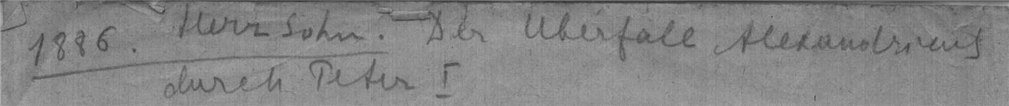 1886. Herzsohn. Der Überfall Alexandriens
durch Peter I